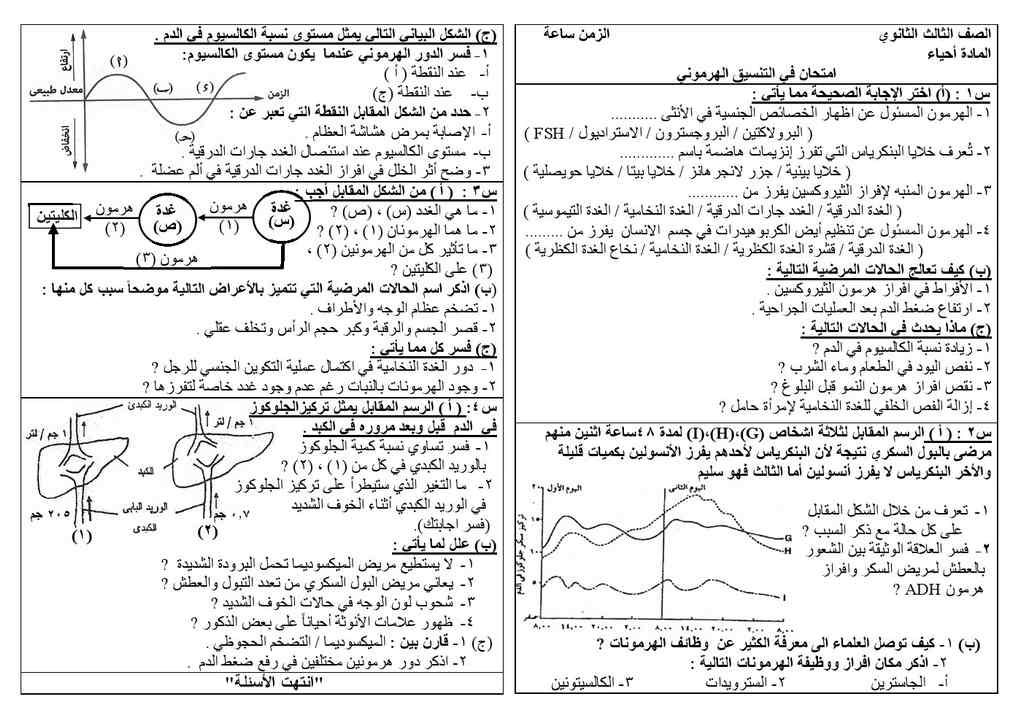 الصف الثالث الثانوي الزمن ساعة
المادة أحياء
امتحان في التنسيق الهرموني
س١ : (أ) اختر الإجابة الصحيحة مما يأتى :
١- الهرمون المسئول عن اظهار الخصائص الجنسية في الأنثى ...........
( البرولاكتين / البروجسترون / الاستراديول / FSH )
٢- تُعرف خلايا البنكرياس التي تفرز إنزيمات هاضمة باسم .............
( خلايا بينية / جزر لانجر هانز / خلايا بيتا / خلايا حويصلية )
٣- الهرمون المنبه لإفراز الثيروكسين يفرز من ............
( الغدة الدرقية / الغدد جارات الدرقية / الغدة النخامية / الغدة التيموسية )
٤- الهرمون المسئول عن تنظيم أيض الكربوهيدرات في جسم الانسان يفرز من .........
( الغدة الدرقية / قشرة الغدة الكظرية / الغدة النخامية / نخاع الغدة الكظرية )
(ب) كيف تعالج الحالات المرضية التالية :
١- الأفراط في افراز هرمون الثيروكسين .
٢- ارتفاع ضغط الدم بعد العمليات الجراحية .
(ج) ماذا يحدث في الحالات التالية :
١- زيادة نسبة الكالسيوم في الدم ?
٢- نقص اليود في الطعام وماء الشرب ?
٣- نقص افراز هرمون النمو قبل البلوغ ?
٤- إزالة الفص الخلفي للغدة النخامية لإمرأة حامل ?
س٢ : ( أ ) الرسم المقابل لثلاثة اشخاص (G)،(H)،(I) لمدة ٤٨ساعة اثنين منهم
مرضى بالبول السكري نتيجة لأن البنكرياس لأحدهم يفرز الأنسولين بكميات قليلة
والأخر البنكرياس لا يفرز أنسولين أما الثالث فهو سليم
١- تعرف من خلال الشكل المقابل
على كل حالة مع ذكر السبب ?
٢- فسر العلاقة الوثيقة بين الشعور
بالعطش لمريض السكر وافراز
هرمون ADH ?
اليوم الأول اليوم الثاني
تركيز سكر جلوكوز في الدم
٢٠
١٥
١٠
٥
صفر
G
H
I
٨,٠٠ ١٤,٠٠ ٢٠,٠٠ ٢,٠٠ ٨,٠٠ ١٤,٠٠ ٢٠,٠٠ ٢,٠٠ ٨,٠٠
(ب) ١- كيف توصل العلماء الى معرفة الكثير عن وظائف الهرمونات ?
٢- اذكر مكان افراز ووظيفة الهرمونات التالية :
أ- الجاسترين ٢- السترويدات ٣- الكالسيتونين
(ج) الشكل البياني التالى يمثل مستوى نسبة الكالسيوم في الدم .
١- فسر الدور الهرموني عندما يكون مستوى الكالسيوم:
أ- عند النقطة ( أ )
ب- عند النقطة (ج)
٢- حدد من الشكل المقابل النقطة التي تعبر عن :
أ- الإصابة بمرض هشاشة العظام .
ب- مستوى الكالسيوم عند استئصال الغدد جارات الدرقية .
٣- وضح أثر الخلل في افراز الغدد جارات الدرقية في ألم عضلة .
ارتفاع
معدل طبيعى
انخفاض
(أ)
(ب)
(جـ)
(د)
الزمن
س٣: ( أ ) من الشكل المقابل أجب :
١- ما هي الغدد (س) ، (ص) ?
٢- ما هما الهرمونان (١) ، (٢) ?
٣- ما تأثير كل من الهرمونين (٢) ،
(٣) على الكليتين ?
غدة (س)
هرمون (١)
غدة (ص)
هرمون (٢)
الكليتين
هرمون (٣)
(ب) اذكر اسم الحالات المرضية التي تتميز بالأعراض التالية موضحاً سبب كل منها :
١- تضخم عظام الوجه والأطراف .
٢- قصر الجسم والرقبة وكبر حجم الرأس وتخلف عقلي .
(ج) فسر كل مما يأتي :
١- دور الغدة النخامية في اكتمال عملية التكوين الجنسي للرجل ?
٢- وجود الهرمونات بالنبات رغم عدم وجود غدد خاصة لتفرزها ?
س٤: ( أ ) الرسم المقابل يمثل تركيزالجلوكوز
في الدم قبل وبعد مروره في الكبد .
١- فسر تساوي نسبة كمية الجلوكوز
بالوريد الكبدي في كل من (١) ، (٢) ?
٢- ما التغير الذي ستيطرأ على تركيز الجلوكوز
في الوريد الكبدي أثناء الخوف الشديد
(فسر اجابتك).
الوريد الكبدى
١ جم / لتر
١ جم / لتر
الكبد
الوريد البابى الكبدى
٢٠٥ جم
٠,٧ جم
(١)
(٢)
(ب) علل لما يأتي :
١- لا يستطيع مريض الميكسوديما تحمل البرودة الشديدة ?
٢- يعاني مريض البول السكري من تعدد التبول والعطش ?
٣- شحوب لون الوجه في حالات الخوف الشديد ?
٤- ظهور علامات الأنوثة أحياناً على بعض الذكور ?
(ج) ١- قارن بين : الميكسوديما / التضخم الجحوظي .
٢- اذكر دور هرمونين مختلفين في رفع ضغط الدم .
"انتهت الأسئلة"